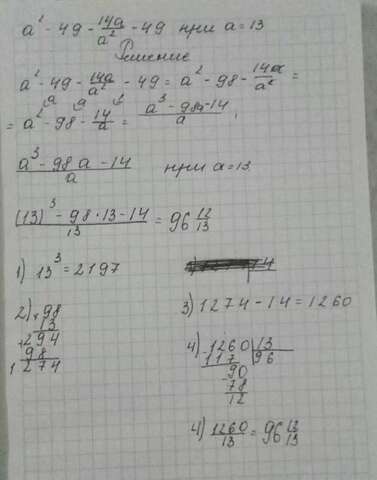 a² - 49 - 14a/a² - 49 при a = 13
Решение
a² - 49 - 14a/a² - 49 = a² - 98 - 14a/a² =
= a² - 98 - 14/a = (a³ - 98a - 14)/a ,
(a³ - 98a - 14)/a при a = 13.
((13)³ - 98·13 - 14)/13 = 96 12/13
1) 13³ = 2197
2) × 98
13
+ 294
98
1274
3) 1274 - 14 = 1260
4) 1260 | 13
117 96
90
- 78
12
4) 1260/13 = 96 12/13